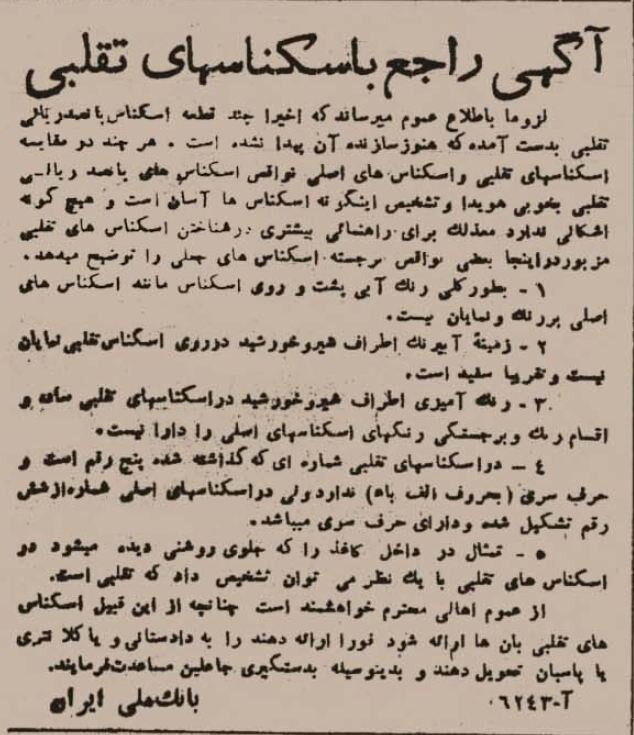 آگهی راجع باسکناسهای تقلبی
لزوما باطلاع عموم میرساند که اخیرا چند قطعه اسکناس پانصدریالی
تقلبی بدست آمده که هنوز سازنده آن پیدا نشده است . هر چند دو مقایسه
اسکناسهای تقلبی و اسکناس های اصلی نواقص اسکناس های پانصد ریالی
تقلبی بخوبی هویدا و تشخیص اینگونه اسکناس ها آسان است و هیچ گونه
اشکالی ندارد معذلک برای راهنمائی بیشتری درشناختن اسکناس های تقلبی
مزبور دراینجا بعضی نواقص برجسته اسکناس های جعلی را توضیح میدهد .
۱ - بطورکلی رنك آبی پشت و روی اسکناس مانند اسکناس های
اصلی پررنك و نمایان نیست .
۲ - زمینهٔ آبیرنك اطراف شیروخورشید درروی اسکناس تقلبی نمایان
نیست و تقریبا سفید است .
۳ - رنك آمیزی اطراف شیروخورشید دراسکناسهای تقلبی ساده و
اقسام رنك و برجستگی رنگهای اسکناسهای اصلی را دارا نیست .
٤ - دراسکناسهای تقلبی شماره ای که گذاشته شده پنج رقم است و
حرف سری ( بحروف الف باء ) ندارد ولی دراسکناسهای اصلی شماره ازشش
رقم تشکیل شده و دارای حرف سری میباشد .
۵ - تمثال در داخل کاغذ را که جلوی روشنی دیده میشود در
اسکناس های تقلبی با یك نظر می توان تشخیص داد که تقلبی است .
از عموم اهالی محترم خواهشمند است چنانچه از این قبیل اسکناس
های تقلبی بان ها ارائه شود فورا ارائه دهنده را به دادستانی و یا کلانتری
یا پاسبان تحویل دهند و بدینوسیله بدستگیری جاعلین مساعدت فرمایند .
آ-٦٢٤٣٠ بانك ملی ایران